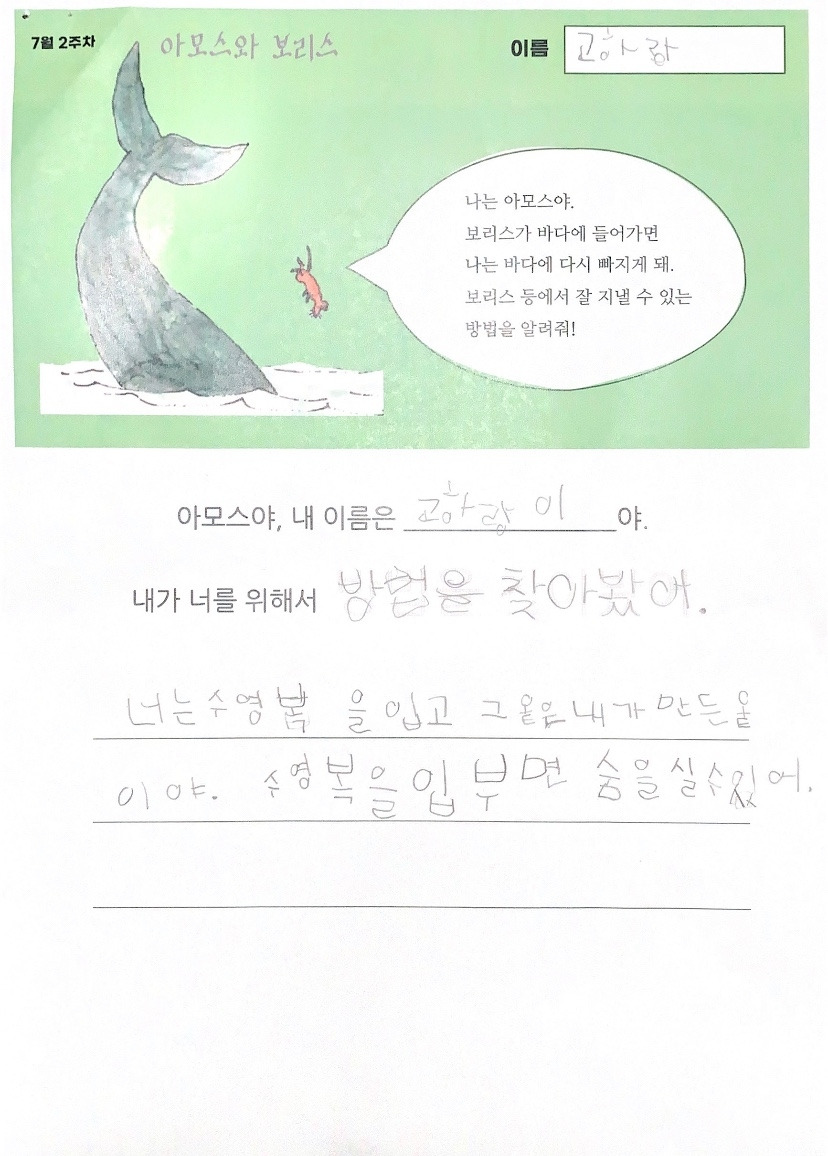 7월 2주차
아모스와 보리스
이름 고하랑
나는 아모스야.
보리스가 바다에 들어가면
나는 바다에 다시 빠지게 돼.
보리스 등에서 잘 지낼 수 있는
방법을 알려줘!
아모스야, 내 이름은 고하랑 이 야.
내가 너를 위해서 방법을 찾아봤어.
너는 수영복 을 입고 그 옽은 내가 만든 옽
이야. 수영복을 입부면 숨을 실수 있어.